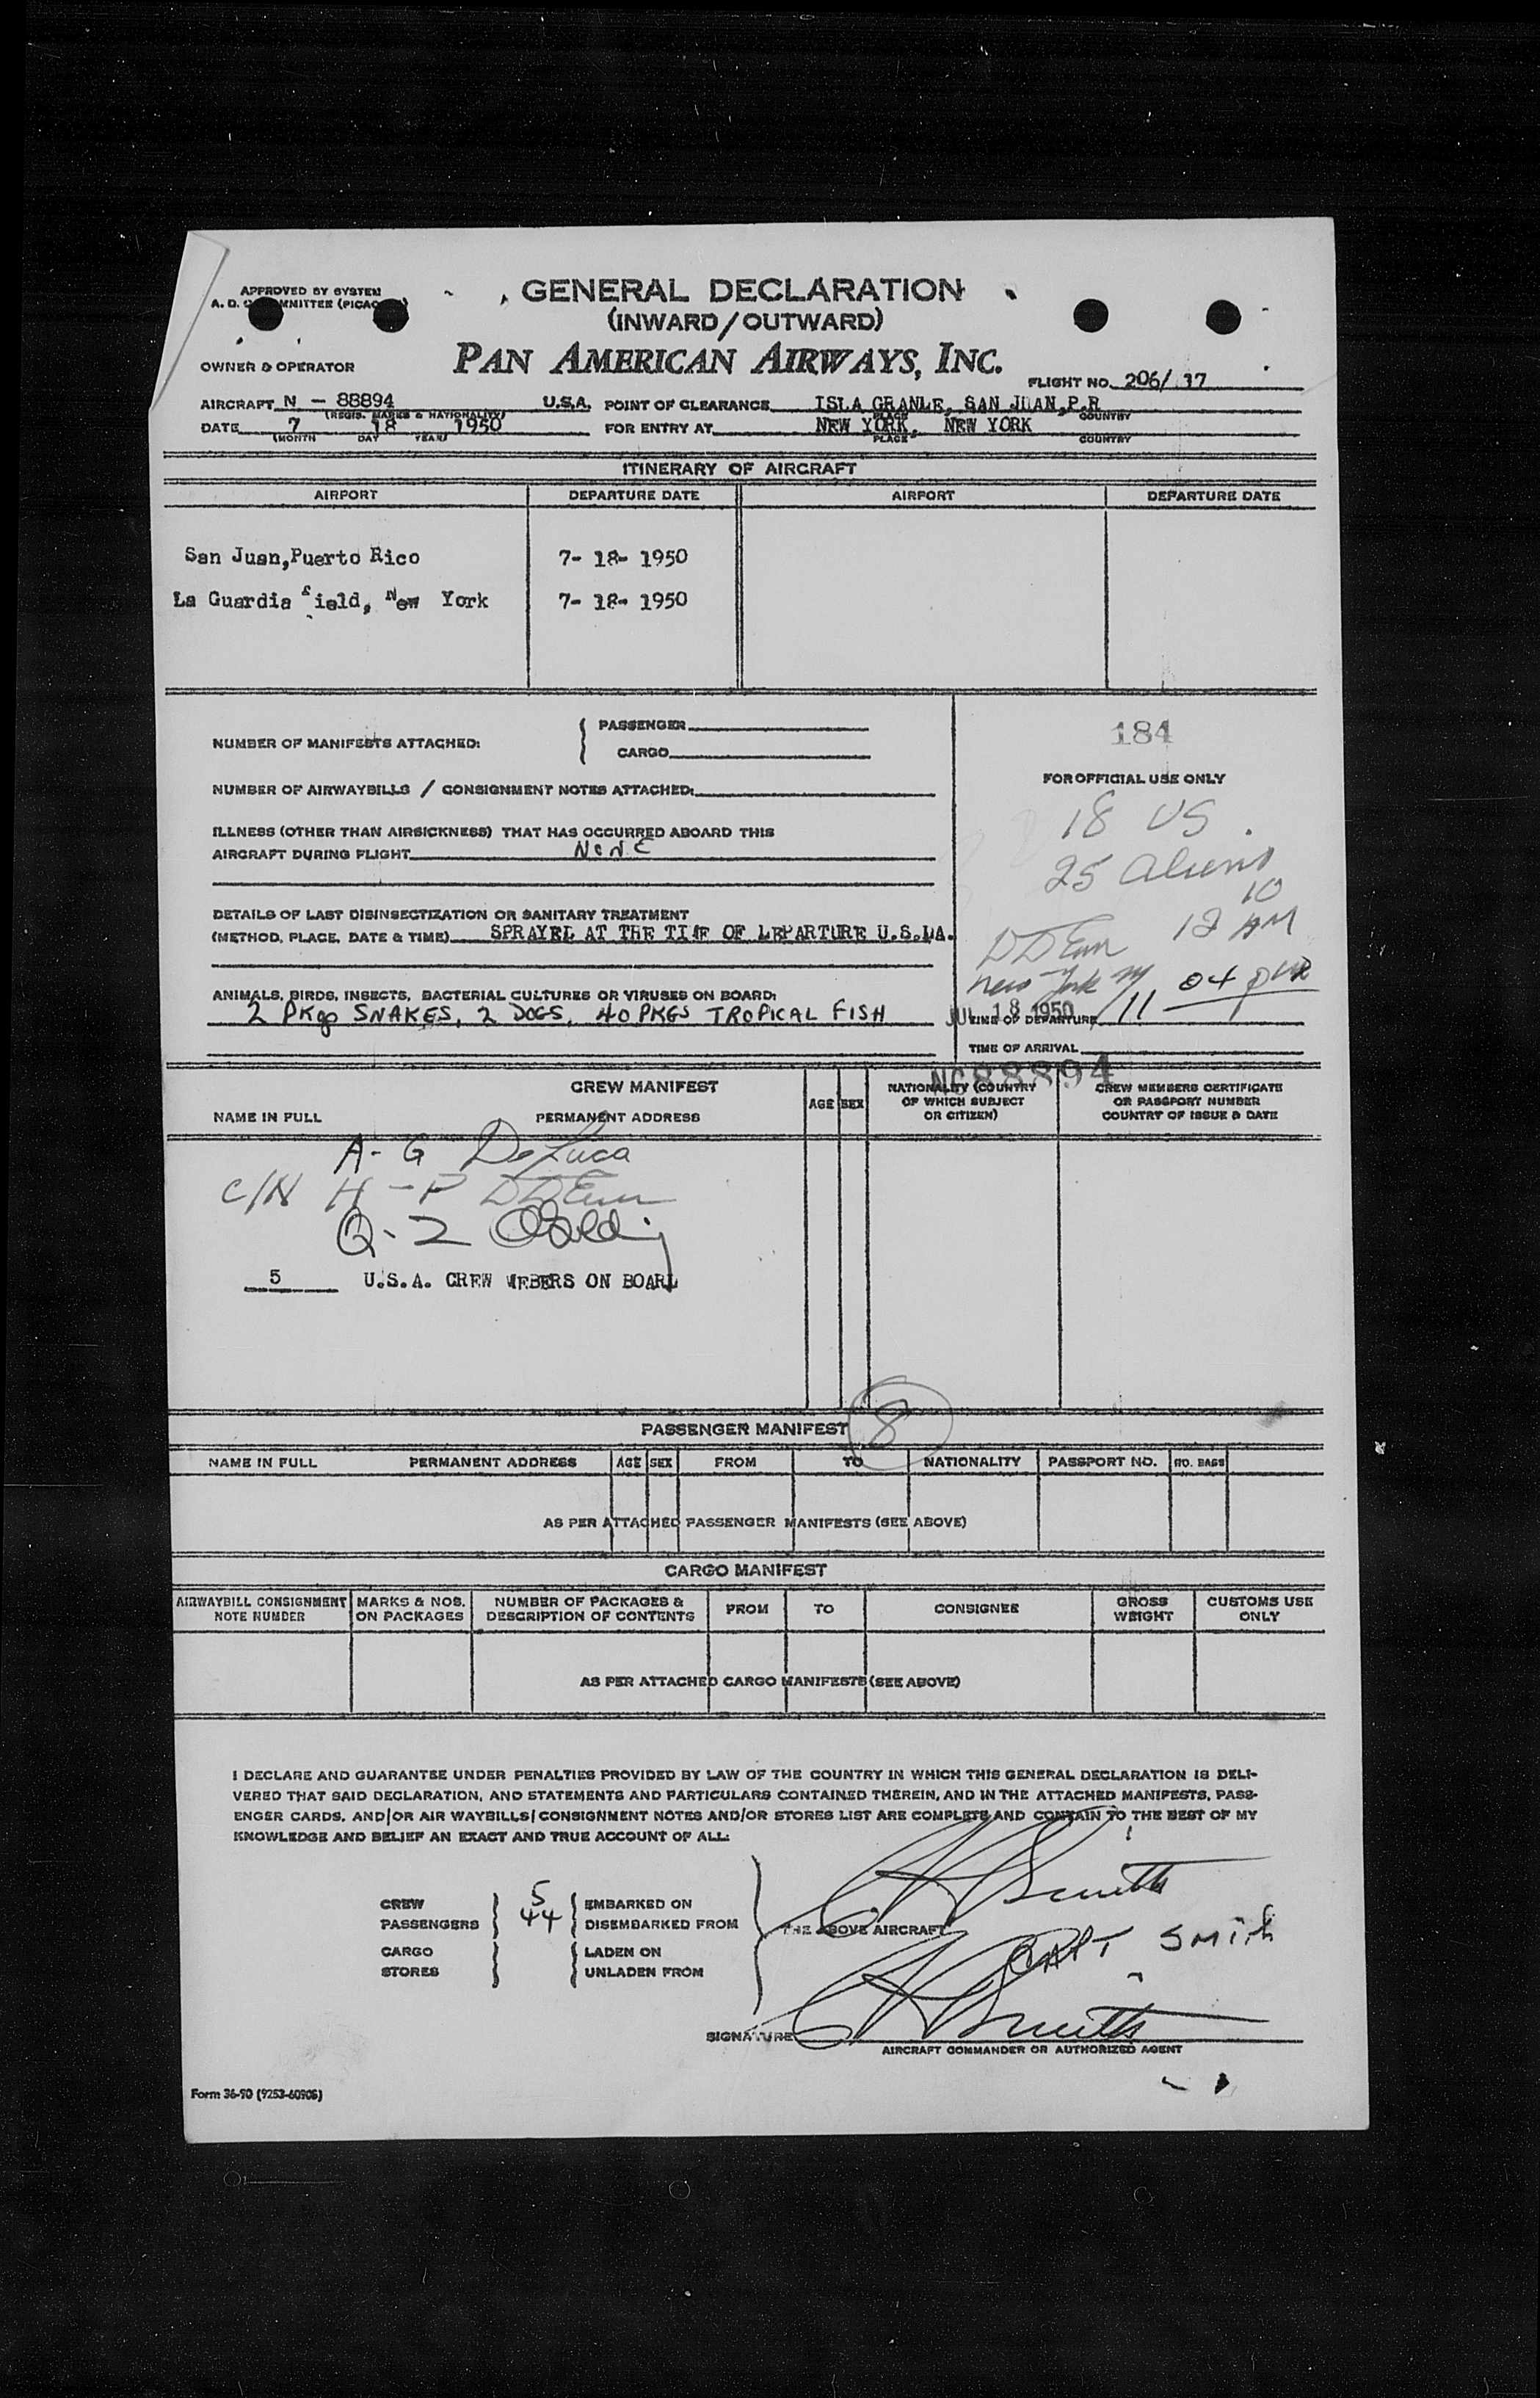 APPROVED BY SYSTEM
GENERAL DECLARATION
(INWARD/OUTWARD)
PAN AMERICAN AIRWAYS, INC.
OWNER & OPERATOR
FLIGHT NO. 206/ 37
AIRCRAFT N - 88894 U.S.A. POINT OF CLEARANCE ISLA GRANDE, SAN JUAN, P.R
(REGIS. MARKS & NATIONALITY) PLACE COUNTRY
DATE 7 18 1950 FOR ENTRY AT NEW YORK, NEW YORK
(MONTH DAY YEAR) PLACE COUNTRY
ITINERARY OF AIRCRAFT
AIRPORT DEPARTURE DATE AIRPORT DEPARTURE DATE
San Juan,Puerto Rico 7- 18- 1950
La Guardia field, New York 7- 18- 1950
184
NUMBER OF MANIFESTS ATTACHED: { PASSENGER
CARGO
FOR OFFICIAL USE ONLY
NUMBER OF AIRWAYBILLS / CONSIGNMENT NOTES ATTACHED:
18 US
25 Aliens
ILLNESS (OTHER THAN AIRSICKNESS) THAT HAS OCCURRED ABOARD THIS
AIRCRAFT DURING FLIGHT NONE
10
12 AM
DETAILS OF LAST DISINSECTIZATION OR SANITARY TREATMENT
(METHOD, PLACE, DATE & TIME) SPRAYED AT THE TIME OF DEPARTURE U.S.DA.
New York
04
ANIMALS, BIRDS, INSECTS, BACTERIAL CULTURES OR VIRUSES ON BOARD:
2 PKgs SNAKES, 2 DOGS, 40 PKGS TROPICAL FISH
JUL 18 1950 /11
TIME OF DEPARTURE
TIME OF ARRIVAL
NC88894
CREW MANIFEST
NAME IN FULL PERMANENT ADDRESS AGE SEX NATIONALITY (COUNTRY OF WHICH SUBJECT OR CITIZEN) CREW MEMBERS CERTIFICATE OR PASSPORT NUMBER COUNTRY OF ISSUE & DATE
A-G DeLuca
C/N H-P
Q-2
5 U.S.A. CREW MEBERS ON BOARD
PASSENGER MANIFEST 8
NAME IN FULL PERMANENT ADDRESS AGE SEX FROM TO NATIONALITY PASSPORT NO. NO. BAGS
AS PER ATTACHED PASSENGER MANIFESTS (SEE ABOVE)
CARGO MANIFEST
AIRWAYBILL CONSIGNMENT NOTE NUMBER MARKS & NOS. ON PACKAGES NUMBER OF PACKAGES & DESCRIPTION OF CONTENTS FROM TO CONSIGNEE GROSS WEIGHT CUSTOMS USE ONLY
AS PER ATTACHED CARGO MANIFESTS (SEE ABOVE)
I DECLARE AND GUARANTEE UNDER PENALTIES PROVIDED BY LAW OF THE COUNTRY IN WHICH THIS GENERAL DECLARATION IS DELI-
VERED THAT SAID DECLARATION, AND STATEMENTS AND PARTICULARS CONTAINED THEREIN, AND IN THE ATTACHED MANIFESTS, PASS-
ENGER CARDS, AND/OR AIR WAYBILLS/CONSIGNMENT NOTES AND/OR STORES LIST ARE COMPLETE AND CONTAIN TO THE BEST OF MY
KNOWLEDGE AND BELIEF AN EXACT AND TRUE ACCOUNT OF ALL:
Smith
CREW 5 EMBARKED ON
PASSENGERS 44 DISEMBARKED FROM THE ABOVE AIRCRAFT
CAPT SMITH
CARGO LADEN ON
STORES UNLADEN FROM
SIGNATURE Smith
AIRCRAFT COMMANDER OR AUTHORIZED AGENT
Form 36-90 (9253-60908)